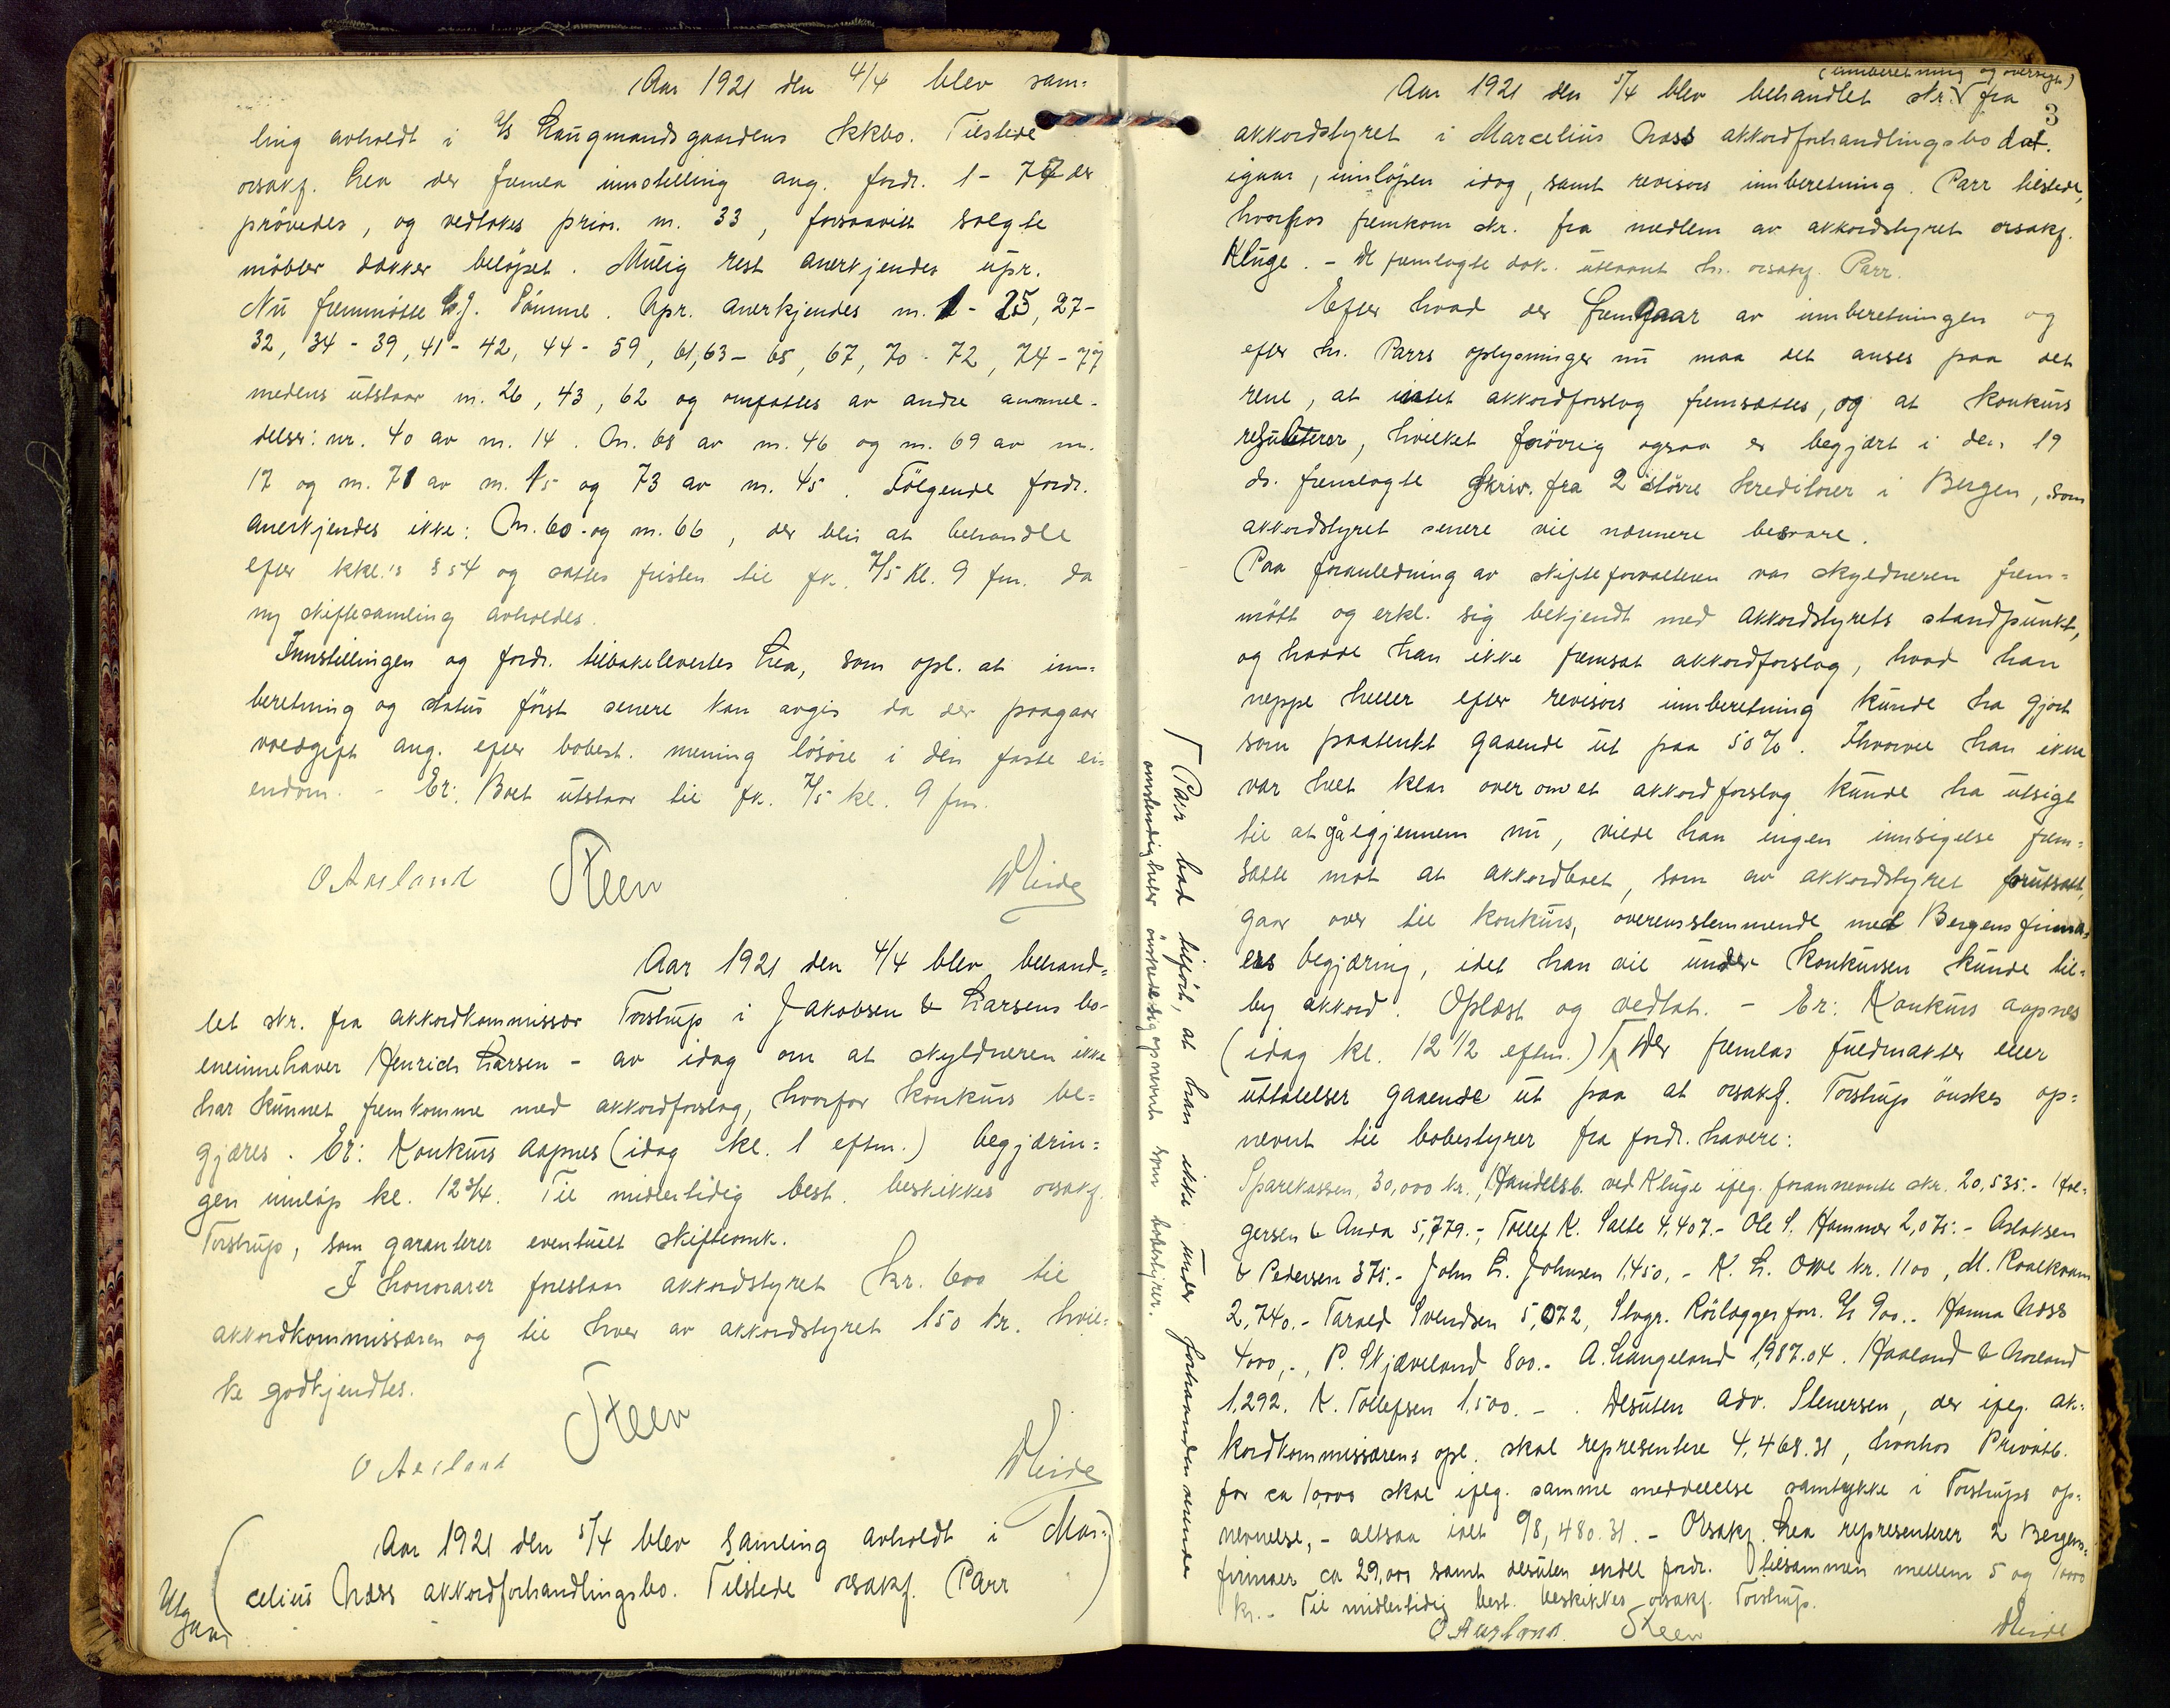 Aar 1921 den 4/4 blev sam-
ling avholdt i A/S Laugmandsgaardens kkbo. Tilstede
orsakf. Lea der fremla innstilling ang. fordr. 1 - 77 der
prøvedes, og vedtokes prior. nr. 33, forsaavitt solgte
møbler dækker beløpet. Mulig rest anerkjendes upr.
Nu fremmøtte E.J. Sømme. Upr. anerkjendes nr. 1 - 25, 27-
32, 34 - 39, 41 - 42, 44 - 59, 61, 63 - 65, 67, 70 - 72, 74 - 77
medens utstaar nr. 26, 43, 62 og omfattes av andre anmel-
delser: nr. 40 av nr. 14. Nr. 68 av nr. 46 og nr. 69 av nr.
17 og nr. 71 av nr. 15 og 73 av nr. 45. Følgende fordr.
anerkjendes ikke: Nr. 60 og nr. 66, der blir at behandle
efter kkl.'s § 54 og sattes fristen til fk. 7/5 kl. 9 fm. da
ny skiftesamling avholdes.
Innstillingen og fordr. tilbakelevertes Lea, som opl. at inn-
beretning og status først senere kan avgis da der paagaar
voldgift ang. efter bobest. mening løsøre i den faste ei-
endom. - Er: Boet utstaar til fk. 7/5 kl. 9 fm.
O Aarland Steen
Aar 1921 den 4/4 blev behand-
let skr. fra akkordkommissær Torstrup i Jakobsen & Larsens bo-
eneinnehaver Henrich Larsen - av idag om at skyldneren ikke
har kunnet fremkomme med akkordforslag, hvorfor konkurs be-
gjæres. Er: Konkurs aapnes (idag kl. 1 eftm.) begjærin-
gen innløp kl. 12 3/4. Til midlertidig best. beskikkes orsakf.
Torstrup, som garanterer eventuelt skifteomk.
I honorarer foreslaar akkordstyret kr. 600 til
akkordkommissæren og til hver av akkordstyret 150 kr. hvil-
ke godkjendtes.
O Aarland Steen
Aar 1921 den 5/4 blev samling avholdt i Mar-
celius Næss akkordforhandlingsbo. Tilstede orsakf. Parr
Utgaar
(innberetning og oversigt)
Aar 1921 den 5/4 blev behandlet skr. fra
3
akkordstyret i Marcelius Næss akkordforhandlingsbo dat.
igaar, innløpen idag, samt revisors innberetning. Parr tilstede,
hvorhos fremkom skr. fra medlem av akkordstyret orsakf.
Kluge. - De fremlagte dok. utlaant hr. orsakf. Parr.
Efter hvad der fremgaar av innberetningen og
efter hr. Parrs oplysninger nu maa det anses paa det
rene, at intet akkordforslag fremsættes, og at konkurs
resulterer, hvilket forøvrig ogsaa er begjært i den 19
ds. fremlagte skriv. fra 2 større kreditorer i Bergen, som
akkordstyret senere vil nærmere besvare.
Paa foranledning av skifteforvalteren var skyldneren frem-
møtt og erkl. sig bekjendt med akkordstyrets standpunkt,
og hadde han ikke fremsat akkordforslag, hvad han
neppe heller efter revisors innberetning kunde ha gjort
som paatenkt gaaende ut paa 50%. Ihvorvel han ikke
var helt klar over om et akkordforslag kunde ha utsigt
til at gå igjennem nu, vilde han ingen innsigelse frem-
sætte mot at akkordboet, som av akkordstyret forutsatt,
gaar over til konkurs, overensstemmende med Bergensfirma-
ers begjæring, idet han vil under konkursen kunde til-
by akkord. Oplæst og vedtat. - Er: Konkurs aapnes
(idag kl. 12 1/2 eftm.) Der fremlas fuldmakter eller
uttalelser gaaende ut paa at orsakf. Torstrup ønskes op-
nevnt til bobestyrer fra fordr. havere:
Sparekassen, 30,000 kr., Handelsb. ved Kluge ifølg. forannevnte skr. 20,535.- Hol-
gersen & Anda 5,779.-, Tollef K. Salte 4,407.- Ole S. Hammer 2,075.- Aslaksen
& Pedersen 375.- John L. Johnsen 1.450.- K. L. Owe kr. 1100, M. Roalkvam
2,740.- Tarald Svendsen 5,072, Stvgr. Rørlæggerforr. A/S 900.- Hanna Næss
4000,-, P. Skjæveland 800.- A. Laugeland 1,987.04. Haaland &
1.292. K. Tollefsen 1.500.-. Desuten adv. Stenersen, der ifølg. ak-
kordkommissærens opl. skal representere 4,468.31, hvorhos Privatb.
for ca 10,000 skal ifølg. samme meddelelse samtykke i Torstrups op-
nevnelse, - altsaa ialt 98,480.31. - Orsakf. Lea representerer 2 Bergens-
firmaer ca 29,000 samt desuten endel fordr. tilsammen mellem 5 og 10000
kr. - Til midlertidig best. beskikkes orsakf. Torstrup.
O Aarland. Steen
Parr bad tilført, at han ikke under forhaandenværende
omstendigheter ønskede sig opnevnt som bobestyrer.